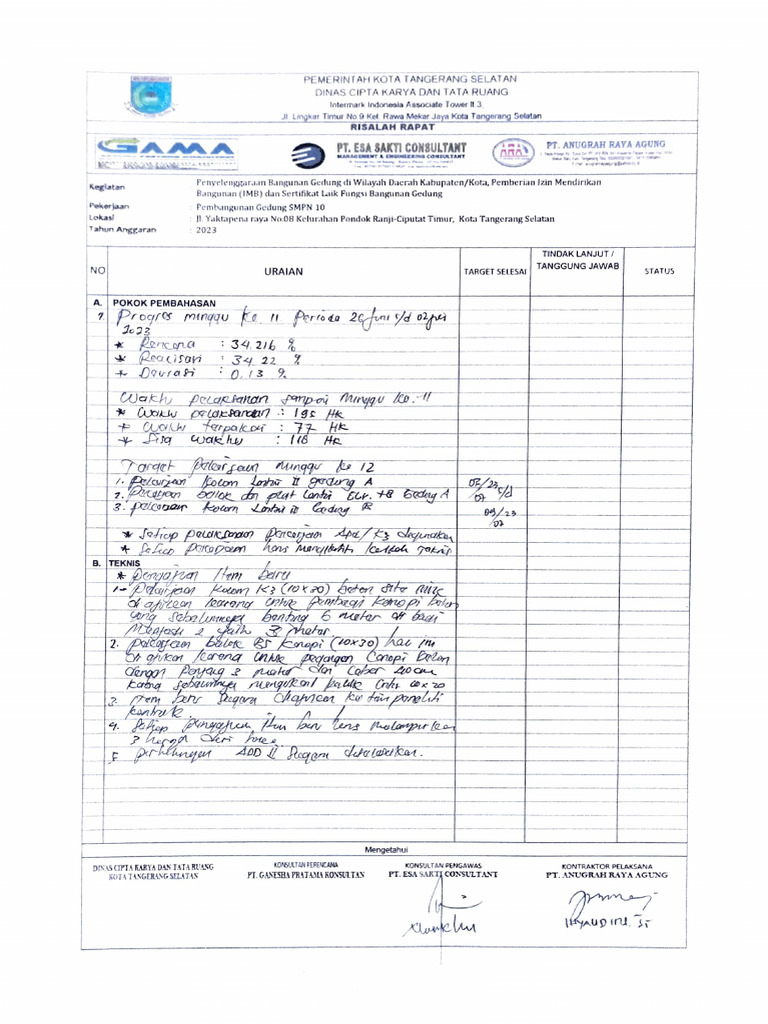 PEMERINTAH KOTA TANGERANG SELATAN
DINAS CIPTA KARYA DAN TATA RUANG
Intermark Indonesia Associate Tower lt 3
Jl. Lingkar Timur No 9 Kel. Rawa Mekar Jaya Kota Tangerang Selatan
RISALAH RAPAT
GAMA
PT. ESA SAKTI CONSULTANT
MANAGEMENT & ENGINEERING CONSULTANT
ARA
PT. ANUGRAH RAYA AGUNG
Kegiatan Penyelenggaraan Bangunan Gedung di Wilayah Daerah Kabupaten/Kota, Pemberian Izin Mendirikan
Bangunan (IMB) dan Sertifikat Laik Fungsi Bangunan Gedung
Pekerjaan : Pembangunan Gedung SMPN 10
Lokasi : Jl. Yaktapena raya No.08 Kelurahan Pondok Ranji-Ciputat Timur, Kota Tangerang Selatan
Tahun Anggaran : 2023
NO URAIAN TARGET SELESAI TINDAK LANJUT / TANGGUNG JAWAB STATUS
A. POKOK PEMBAHASAN
1. Progres minggu ke 11 Periode 26 Juni s/d 02
2023
* Rencana : 34.216 %
* Realisasi : 34.22 %
* Deviasi : 0.13 %
Waktu pelaksanaan sampai minggu ke-11
* Waktu pelaksanaan : 195 HK
* Waktu terpakai : 77 HK
* Sisa waktu : 118 HK
Target pekerjaan minggu ke 12
1. Pekerjaan kolom lantai II gedung A 03/23 s/d
07
2. balok dan plat lantai Gedung A
3. pekerjaan kolom lantai Gedung 09/23
07
* Setiap pelaksanaan pekerjaan Apd/K3 digunakan
* Setiap pekerjaan harus
B. TEKNIS
* Pengajuan Item baru
1- Pekerjaan kolom K3 (10x30) beton
di ajukan karena untuk Kanopi beton
yang sebelumnya 6 meter di bagi
menjadi 2 yaitu 3 meter.
2. pekerjaan balok B5 Kanopi (10x30) hal ini
di ajukan karena untuk pegangan Canopi Beton
dengan panjang 3 meter dan Lebar
karena sebelumnya
3. Item baru segera diajukan ke tim peneliti
kontrak
4. Setiap pengajuan item baru harus melampirkan
3 harga dari
5 perhitungan ADD II segera diselesaikan.
Mengetahui
DINAS CIPTA KARYA DAN TATA RUANG
KOTA TANGERANG SELATAN
KONSULTAN PERENCANA
PT. GANESHA PRATAMA KONSULTAN
KONSULTAN PENGAWAS
PT. ESA SAKTI CONSULTANT
KONTRAKTOR PELAKSANA
PT. ANUGRAH RAYA AGUNG